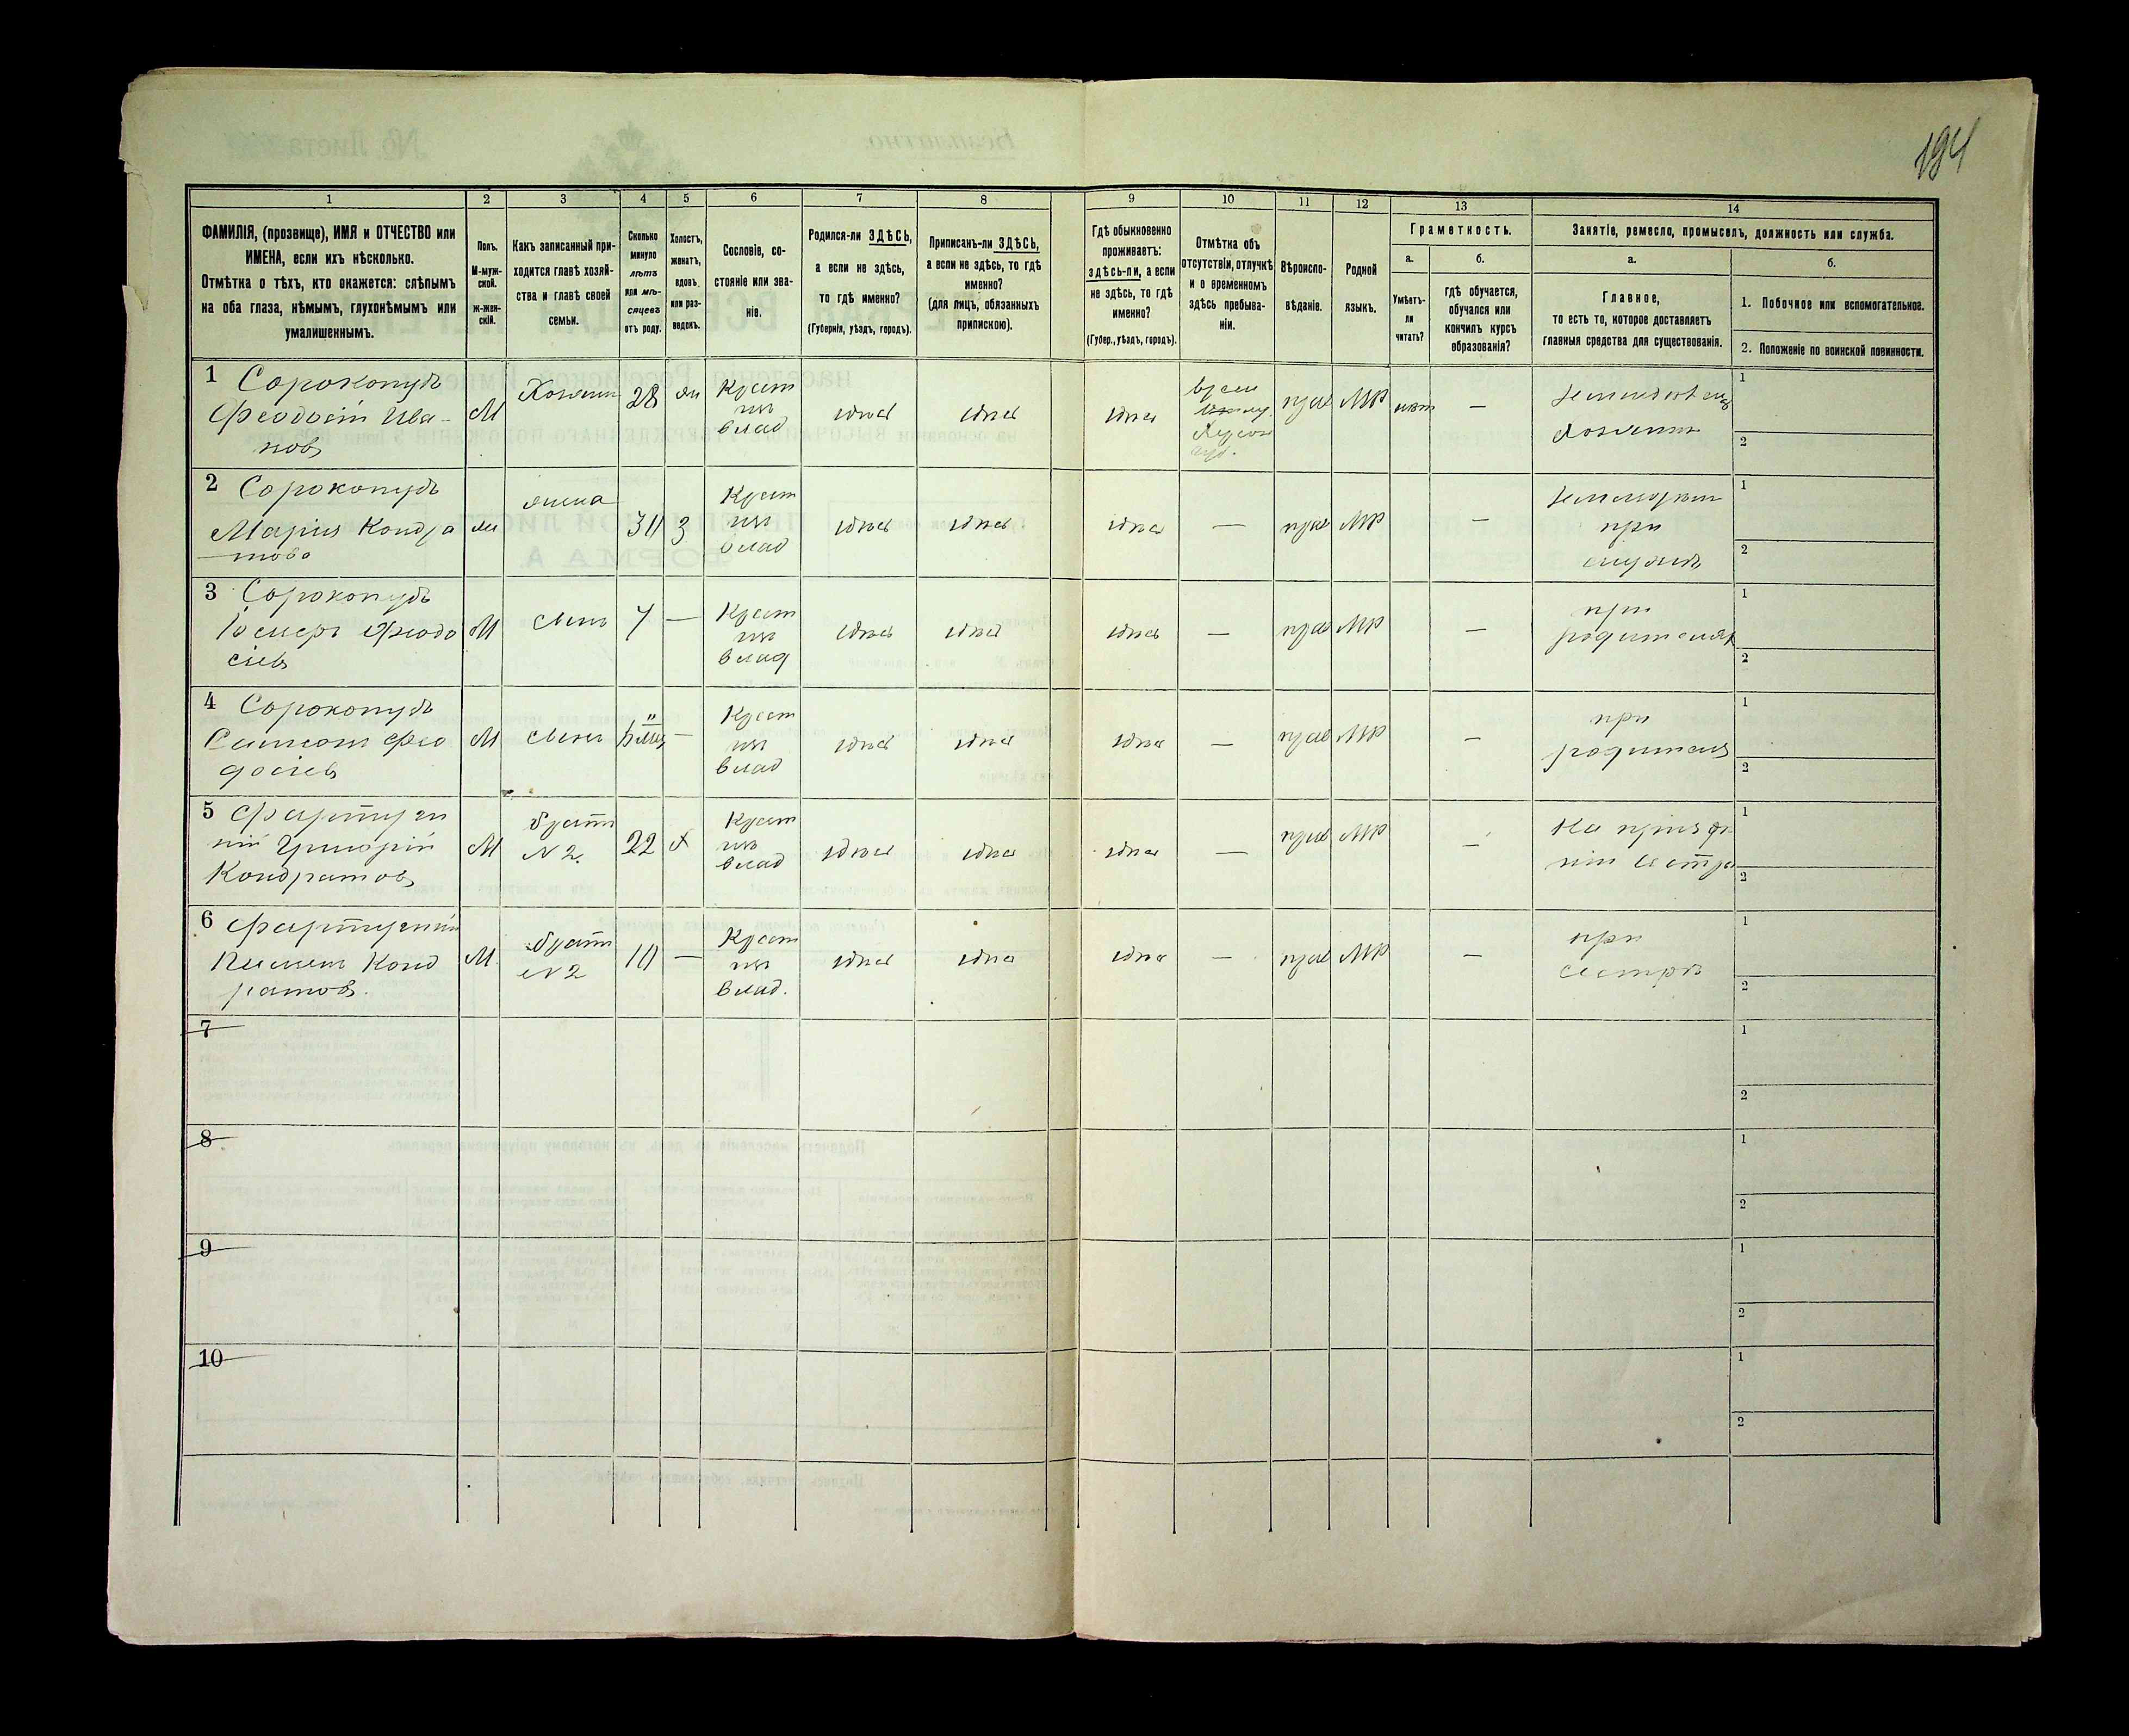 194
1
2
3
4
5
6
7
8
9
10
11
12
13
14
ФАМИЛІЯ, (прозвище), ИМЯ и ОТЧЕСТВО или
ИМЕНА, если ихъ нѣсколько.
Отмѣтка о тѣхъ, кто окажется: слѣпымъ
на оба глаза, нѣмымъ, глухонѣмымъ или
умалишеннымъ.
Полъ.
М-муж-
ской.
ж-жен-
скій.
Какъ записанный при-
ходится главѣ хозяй-
ства и главѣ своей
семьи.
Сколько
минуло
лѣтъ
или мѣ-
сяцевъ
отъ роду.
Холостъ,
женатъ,
вдовъ
или раз-
веденъ.
Сословіе, со-
стояніе или зва-
ніе.
Родился-ли ЗДѢСЬ,
а если не здѣсь,
то гдѣ именно?
(Губернія, уѣздъ, городъ).
Приписанъ-ли ЗДѢСЬ,
а если не здѣсь, то гдѣ
именно?
(для лицъ, обязанныхъ
припискою).
Гдѣ обыкновенно
проживаетъ:
здѣсь-ли, а если
не здѣсь, то гдѣ
именно?
(Губер., уѣздъ, городъ).
Отмѣтка объ
отсутствіи, отлучкѣ
и о временномъ
здѣсь пребыва-
ніи.
Вѣроиспо-
вѣданіе.
Родной
языкъ.
Грамотность.
а.
Умѣетъ-
ли
читать?
б.
гдѣ обучается,
обучался или
кончилъ курсъ
образованія?
Занятіе, ремесло, промыселъ, должность или служба.
а.
Главное,
то есть то, которое доставляетъ
главныя средства для существованія.
б.
1. Побочное или вспомогательное.
2. Положеніе по воинской повинности.
1 Сорокопудъ
Феодосій Ива-
новъ
М
Хозяинъ
28
жн
Крест
изъ
влад
здѣсь
здѣсь
здѣсь
врем
Херсон
губ.
прав
МР
нѣт
—
хозяинъ
1
2
2 Сорокопудъ
Марія Кондра
това
жена
3
Крест
изъ
влад
здѣсь
здѣсь
здѣсь
—
прав
МР
—
при
1
2
3 Сорокопудъ
Феодо
сіевъ
М
сынъ
7
—
Крест
изъ
влад
здѣсь
здѣсь
здѣсь
—
прав
МР
—
при
родителях
1
2
4 Сорокопудъ
Фео
досіевъ
М
сынъ
—
Крест
изъ
влад
здѣсь
здѣсь
здѣсь
—
прав
МР
—
при
1
2
5
Григорій
Кондратовъ
М
братъ
N 2.
22
х
Крест
изъ
влад
здѣсь
здѣсь
здѣсь
—
прав
МР
—
1
2
6
Конд
ратовъ.
М.
братъ
N 2
—
Крест
изъ
влад.
здѣсь
здѣсь
здѣсь
—
прав
МР
—
при
сестрѣ
1
2
7
1
2
8
1
2
9
1
2
10
1
2